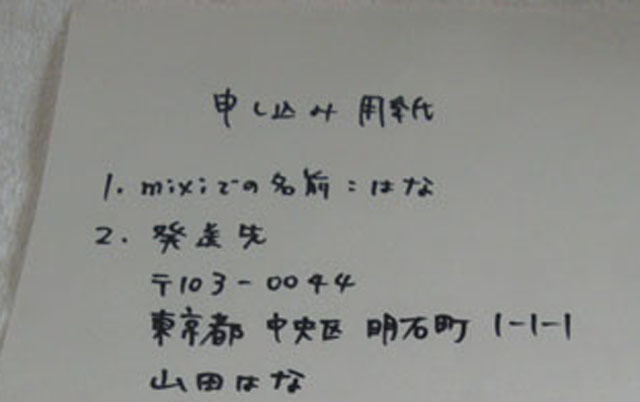 申し込み用紙
1. mixiでの名前：はな
2. 発送先
〒103-0044
東京都 中央区 明石町 1-1-1
山田はな